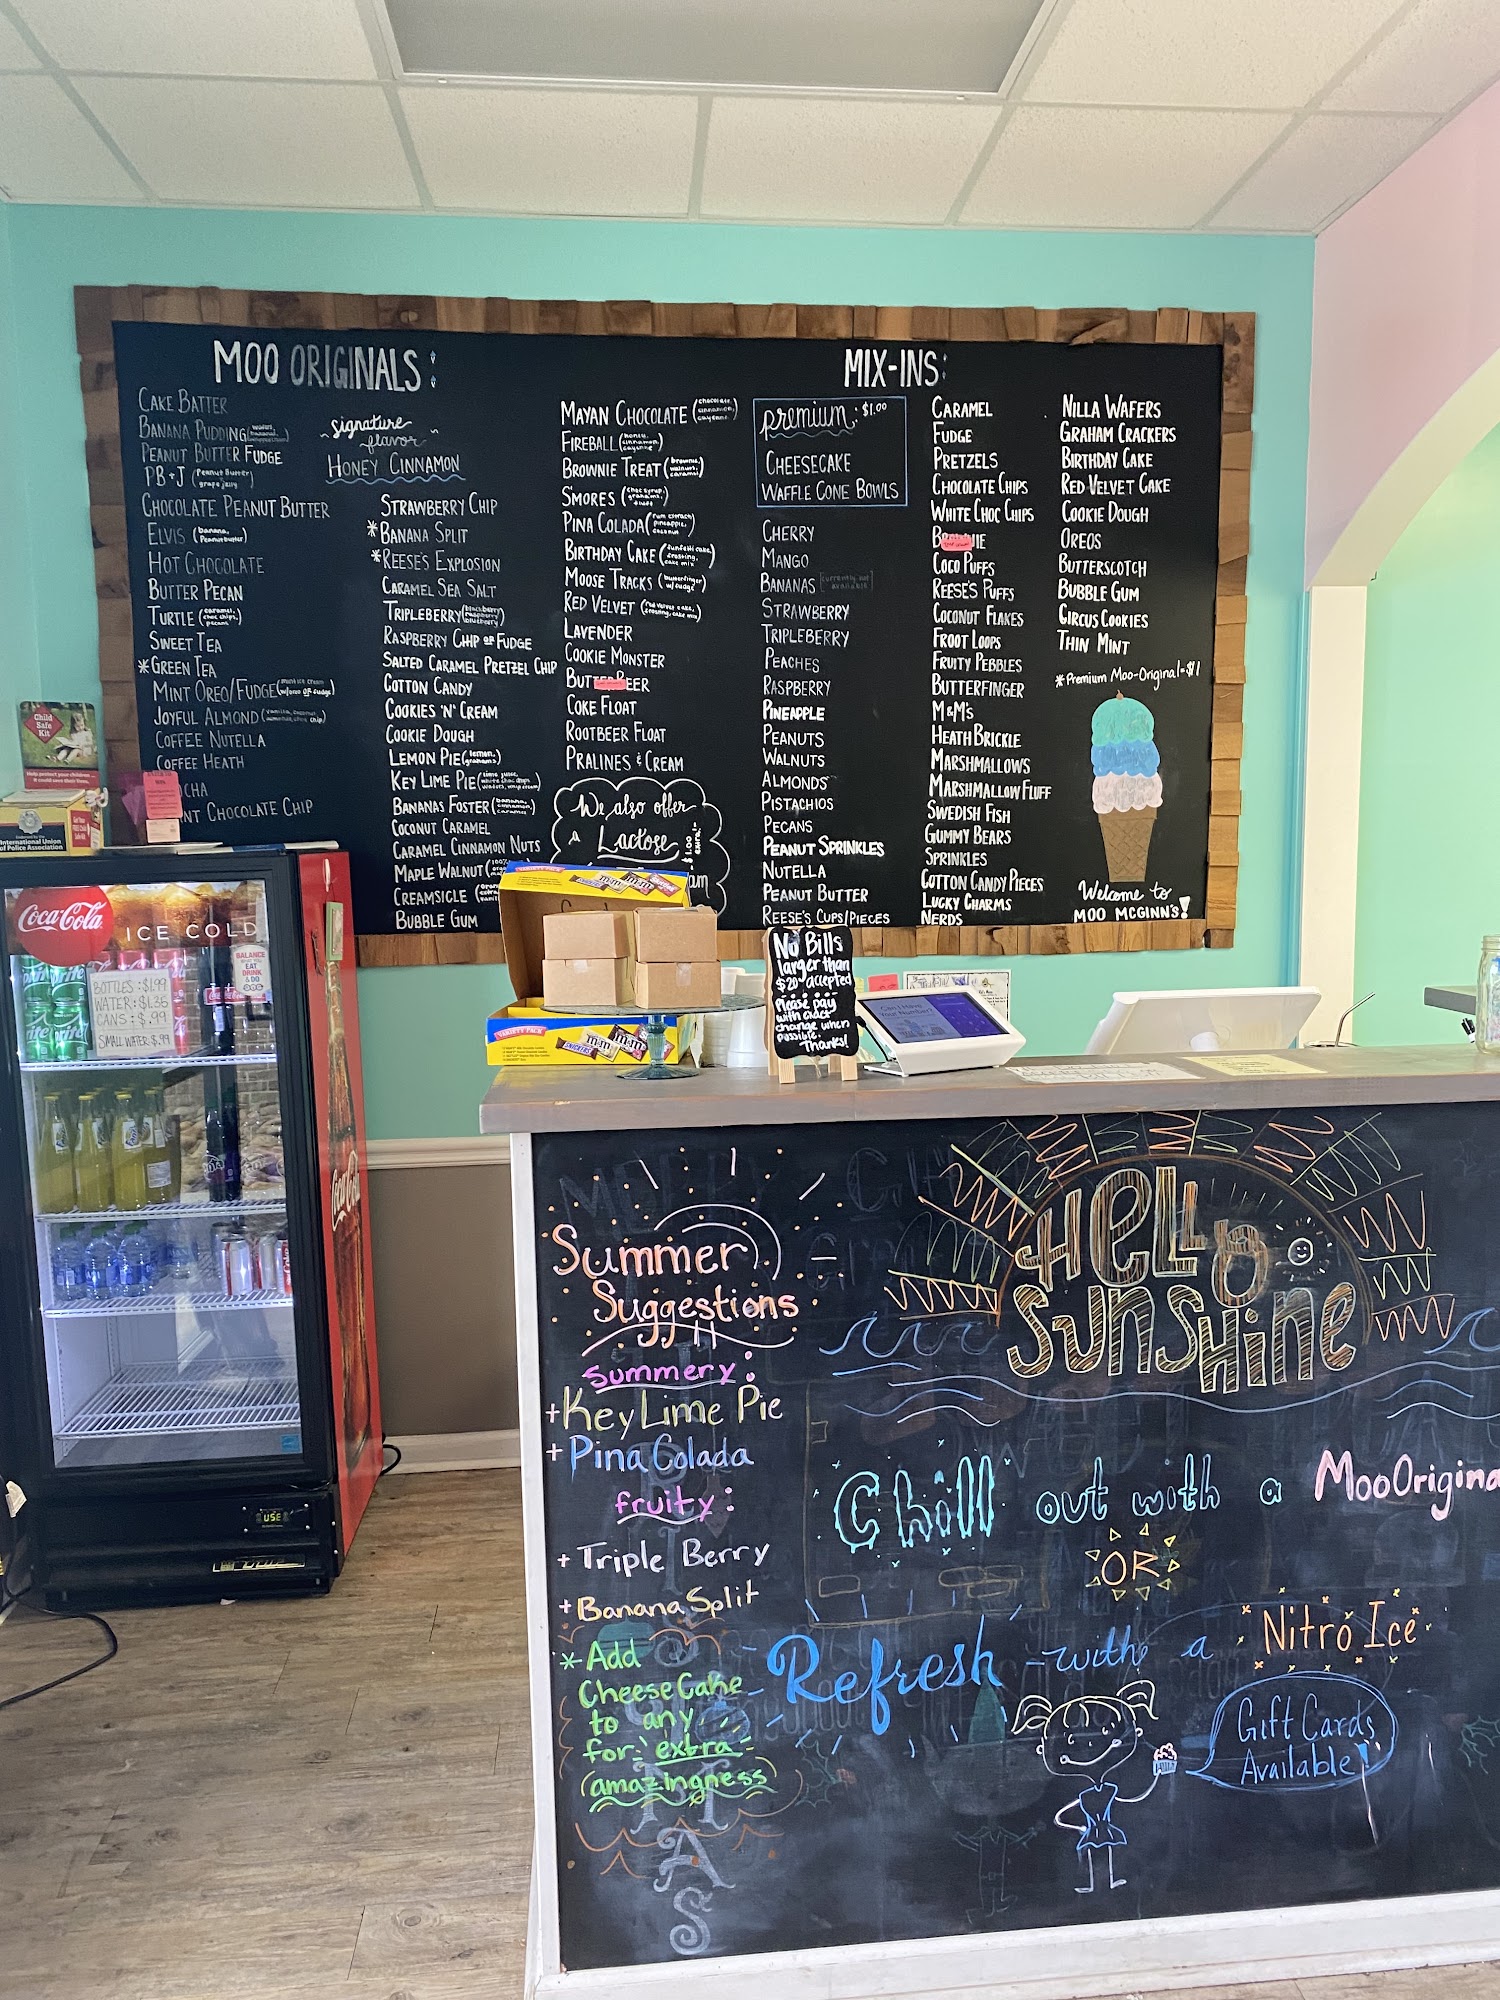 MOO ORIGINALS:
CAKE BATTER
BANANA PUDDING
PEANUT BUTTER FUDGE
PB+J (Peanut Butter, grape jelly)
CHOCOLATE PEANUT BUTTER
ELVIS (banana, Peanut butter)
HOT CHOCOLATE
BUTTER PECAN
TURTLE (caramel, choc chips, pecans)
SWEET TEA
*GREEN TEA
MINT OREO/FUDGE
JOYFUL ALMOND
COFFEE NUTELLA
COFFEE HEATH
CHA
NT CHOCOLATE CHIP
~signature flavor~
HONEY CINNAMON
STRAWBERRY CHIP
*BANANA SPLIT
*REESE'S EXPLOSION
CARAMEL SEA SALT
TRIPLEBERRY (blackberry raspberry blueberry)
RASPBERRY CHIP OR FUDGE
SALTED CARAMEL PRETZEL CHIP
COTTON CANDY
COOKIES 'N' CREAM
COOKIE DOUGH
LEMON PIE (lemon, grahams)
KEY LIME PIE
BANANAS FOSTER (banana, cinnamon, caramel)
COCONUT CARAMEL
CARAMEL CINNAMON NUTS
MAPLE WALNUT
CREAMSICLE
BUBBLE GUM
MAYAN CHOCOLATE (chocolate, cinnamon, cayenne)
FIREBALL (honey, cinnamon, cayenne)
BROWNIE TREAT (brownie, walnuts, caramel)
S'MORES
PINA COLADA (rum extract, pineapple, coconut)
BIRTHDAY CAKE (funfetti cake, frosting, cake mix)
MOOSE TRACKS (butterfinger w/fudge)
RED VELVET (red velvet cake, frosting, cake mix)
LAVENDER
COOKIE MONSTER
BUTTERBEER
COKE FLOAT
ROOTBEER FLOAT
PRALINES & CREAM
We also offer
a Lactose
$1.00 extra!
MIX-INS:
premium: $1.00
CHEESECAKE
WAFFLE CONE BOWLS
CHERRY
MANGO
BANANAS [currently not available]
STRAWBERRY
TRIPLEBERRY
PEACHES
RASPBERRY
PINEAPPLE
PEANUTS
WALNUTS
ALMONDS
PISTACHIOS
PECANS
PEANUT SPRINKLES
NUTELLA
PEANUT BUTTER
REESE'S CUPS/PIECES
CARAMEL
FUDGE
PRETZELS
CHOCOLATE CHIPS
WHITE CHOC CHIPS
BROWNIE
COCO PUFFS
REESE'S PUFFS
COCONUT FLAKES
FROOT LOOPS
FRUITY PEBBLES
BUTTERFINGER
M&M'S
HEATH BRICKLE
MARSHMALLOWS
MARSHMALLOW FLUFF
SWEDISH FISH
GUMMY BEARS
SPRINKLES
COTTON CANDY PIECES
LUCKY CHARMS
NERDS
NILLA WAFERS
GRAHAM CRACKERS
BIRTHDAY CAKE
RED VELVET CAKE
COOKIE DOUGH
OREOS
BUTTERSCOTCH
BUBBLE GUM
CIRCUS COOKIES
THIN MINT
*Premium Moo-Original=$1
Welcome to
MOO MCGINN'S!
Child
Safe
Kit
Help protect your children...
International Union
of Police Association
Coca-Cola
ICE COLD
BALANCE
EAT
DRINK
& DO
BOTTLES: $1.99
WATER: $1.36
CANS: $.99
SMALL WATER: $.99
Sprite
Coca-Cola
VARIETY PACK
m&m's
VARIETY PACK
SNICKERS
m&m's
No Bills
larger than
$20 accepted
Please pay
with exact
change when
possible.
Thanks!
Summer
Suggestions
summery:
+Key Lime Pie
+Pina Colada
fruity:
+Triple Berry
+Banana Split
*Add
CheeseCake
to any
for extra
(amazingness)
HELLO
SUNSHINE
Chill out with a MooOrigina
OR
Refresh -with a Nitro Ice
Gift Cards
Available!